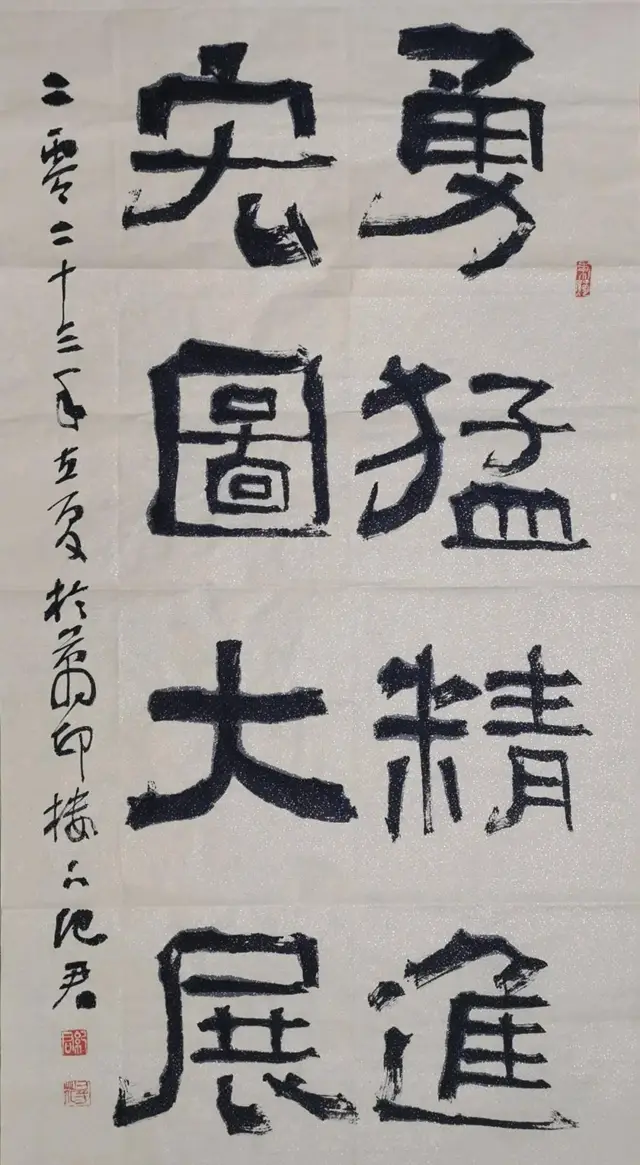 勇猛精進
宏圖大展
二零二十三年立夏於萬印樓紀君